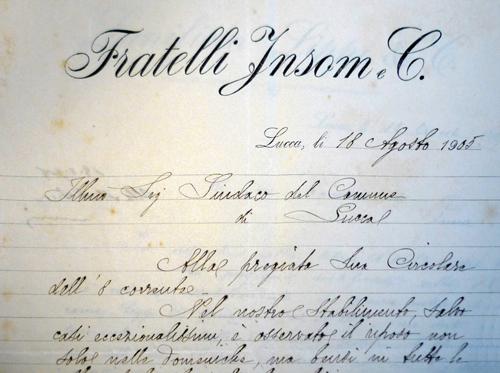 Fratelli Insom e C.
Lucca, li 18 Agosto 1905
Illmo Sig Sindaco del Comune
di Lucca
Alla pregiata Sua Circolare
dell' 8 corrente
Nel nostro stabilimento, salvo
casi eccezionalissimi, è osservato il riposo non
solo nelle domeniche, ma bensì in tutte le